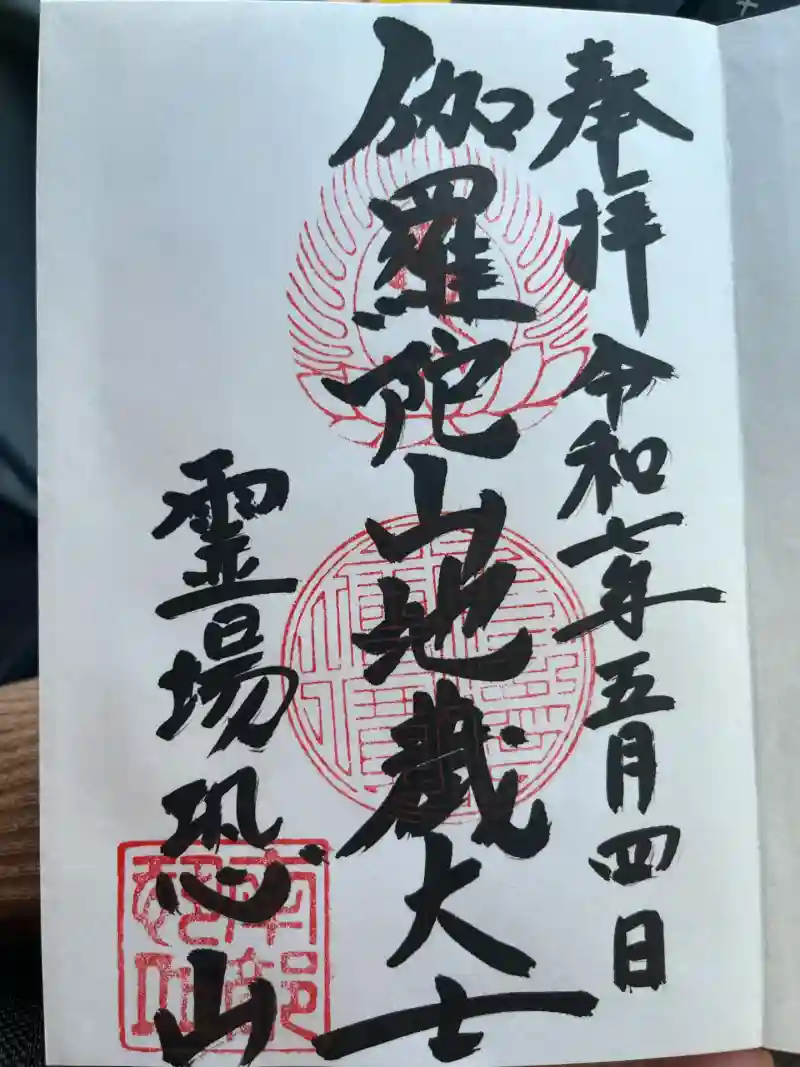 奉拝 令和七年五月四日
伽羅陀山地蔵大士
霊場恐山
南部